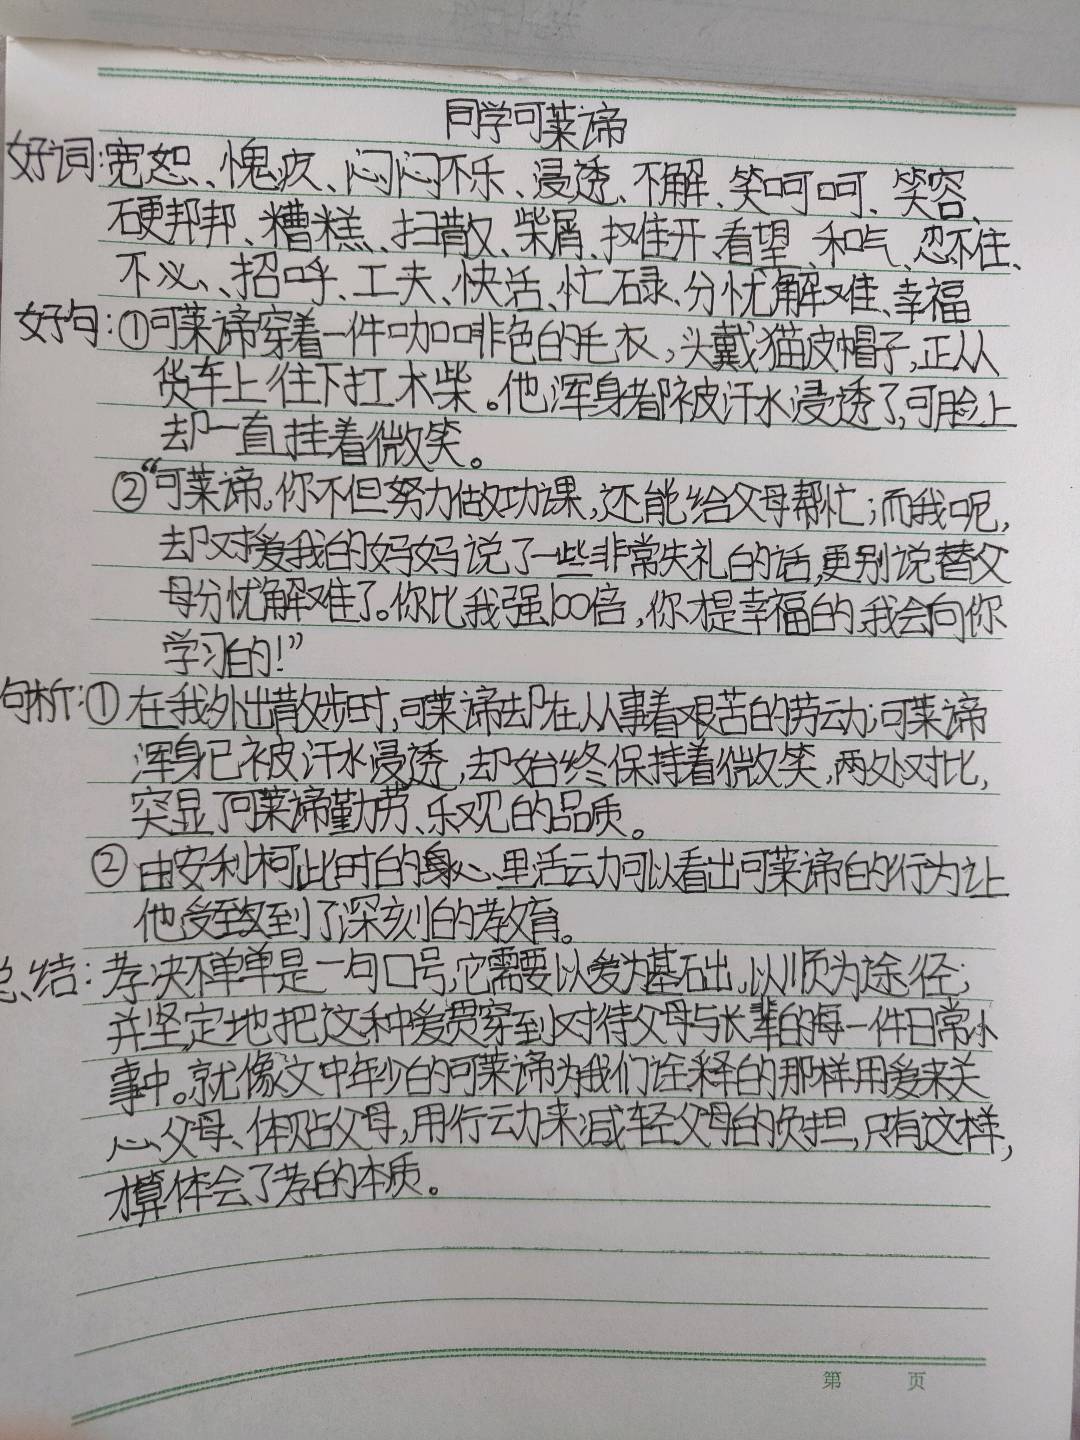 同学可莱谛
好词:宽恕、愧疚、闷闷不乐、浸透、不解、笑呵呵、笑容、
硬邦邦、糟糕、扫散、柴屑、扠住开、看望、和气、忍不住、
不必、招呼、工夫、快活、忙碌、分忧解难、幸福
好句:①可莱谛穿着一件咖啡色的毛衣,头戴猫皮帽子,正从
货车上往下扛木柴。他浑身都被汗水浸透了,可脸上
却一直挂着微笑。
②“可莱谛,你不但努力做功课,还能给父母帮忙;而我呢,
却对爱我的妈妈说了一些非常失礼的话,更别说替父
母分忧解难了。你比我强100倍,你才是幸福的,我会向你
学习的!”
句析:①在我外出散步时,可莱谛却在从事着艰苦的劳动;可莱谛
浑身已被汗水浸透,却始终保持着微笑,两处对比,
突显了可莱谛勤劳、乐观的品质。
②由安利柯此时的身心、里活动可以看出可莱谛的行为让
他受到了深刻的教育。
总结:孝决不单单是一句口号,它需要以爱为基础,以顺为途径;
并坚定地把这种爱贯穿到对待父母与长辈的每一件日常小
事中。就像文中年少的可莱谛为我们诠释的那样用爱来关
心父母、体贴父母,用行动来减轻父母的负担,只有这样,
才算体会了孝的本质。
第 页